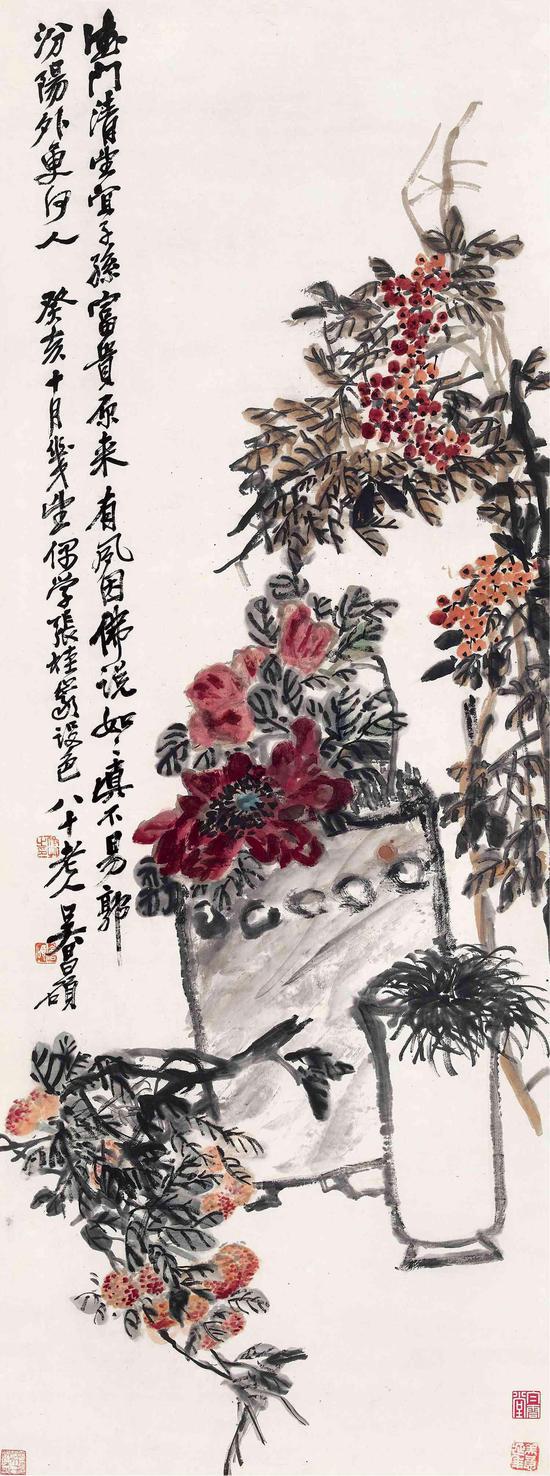 德門清望宜子孫富貴原來有夙因佛說如〻真不易郭
汾陽外更何人 癸亥十月幾望偶學張桂巖設色 八十老人 吳昌碩